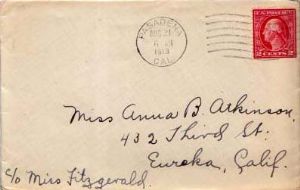 PASADENA
AUG 21
1913
CAL.
U.S. POSTAGE
2 CENTS 2
Miss Anna B. Atkinson.
432 Third St.
Eureka, Calif.
c/o Miss Fitzgerald